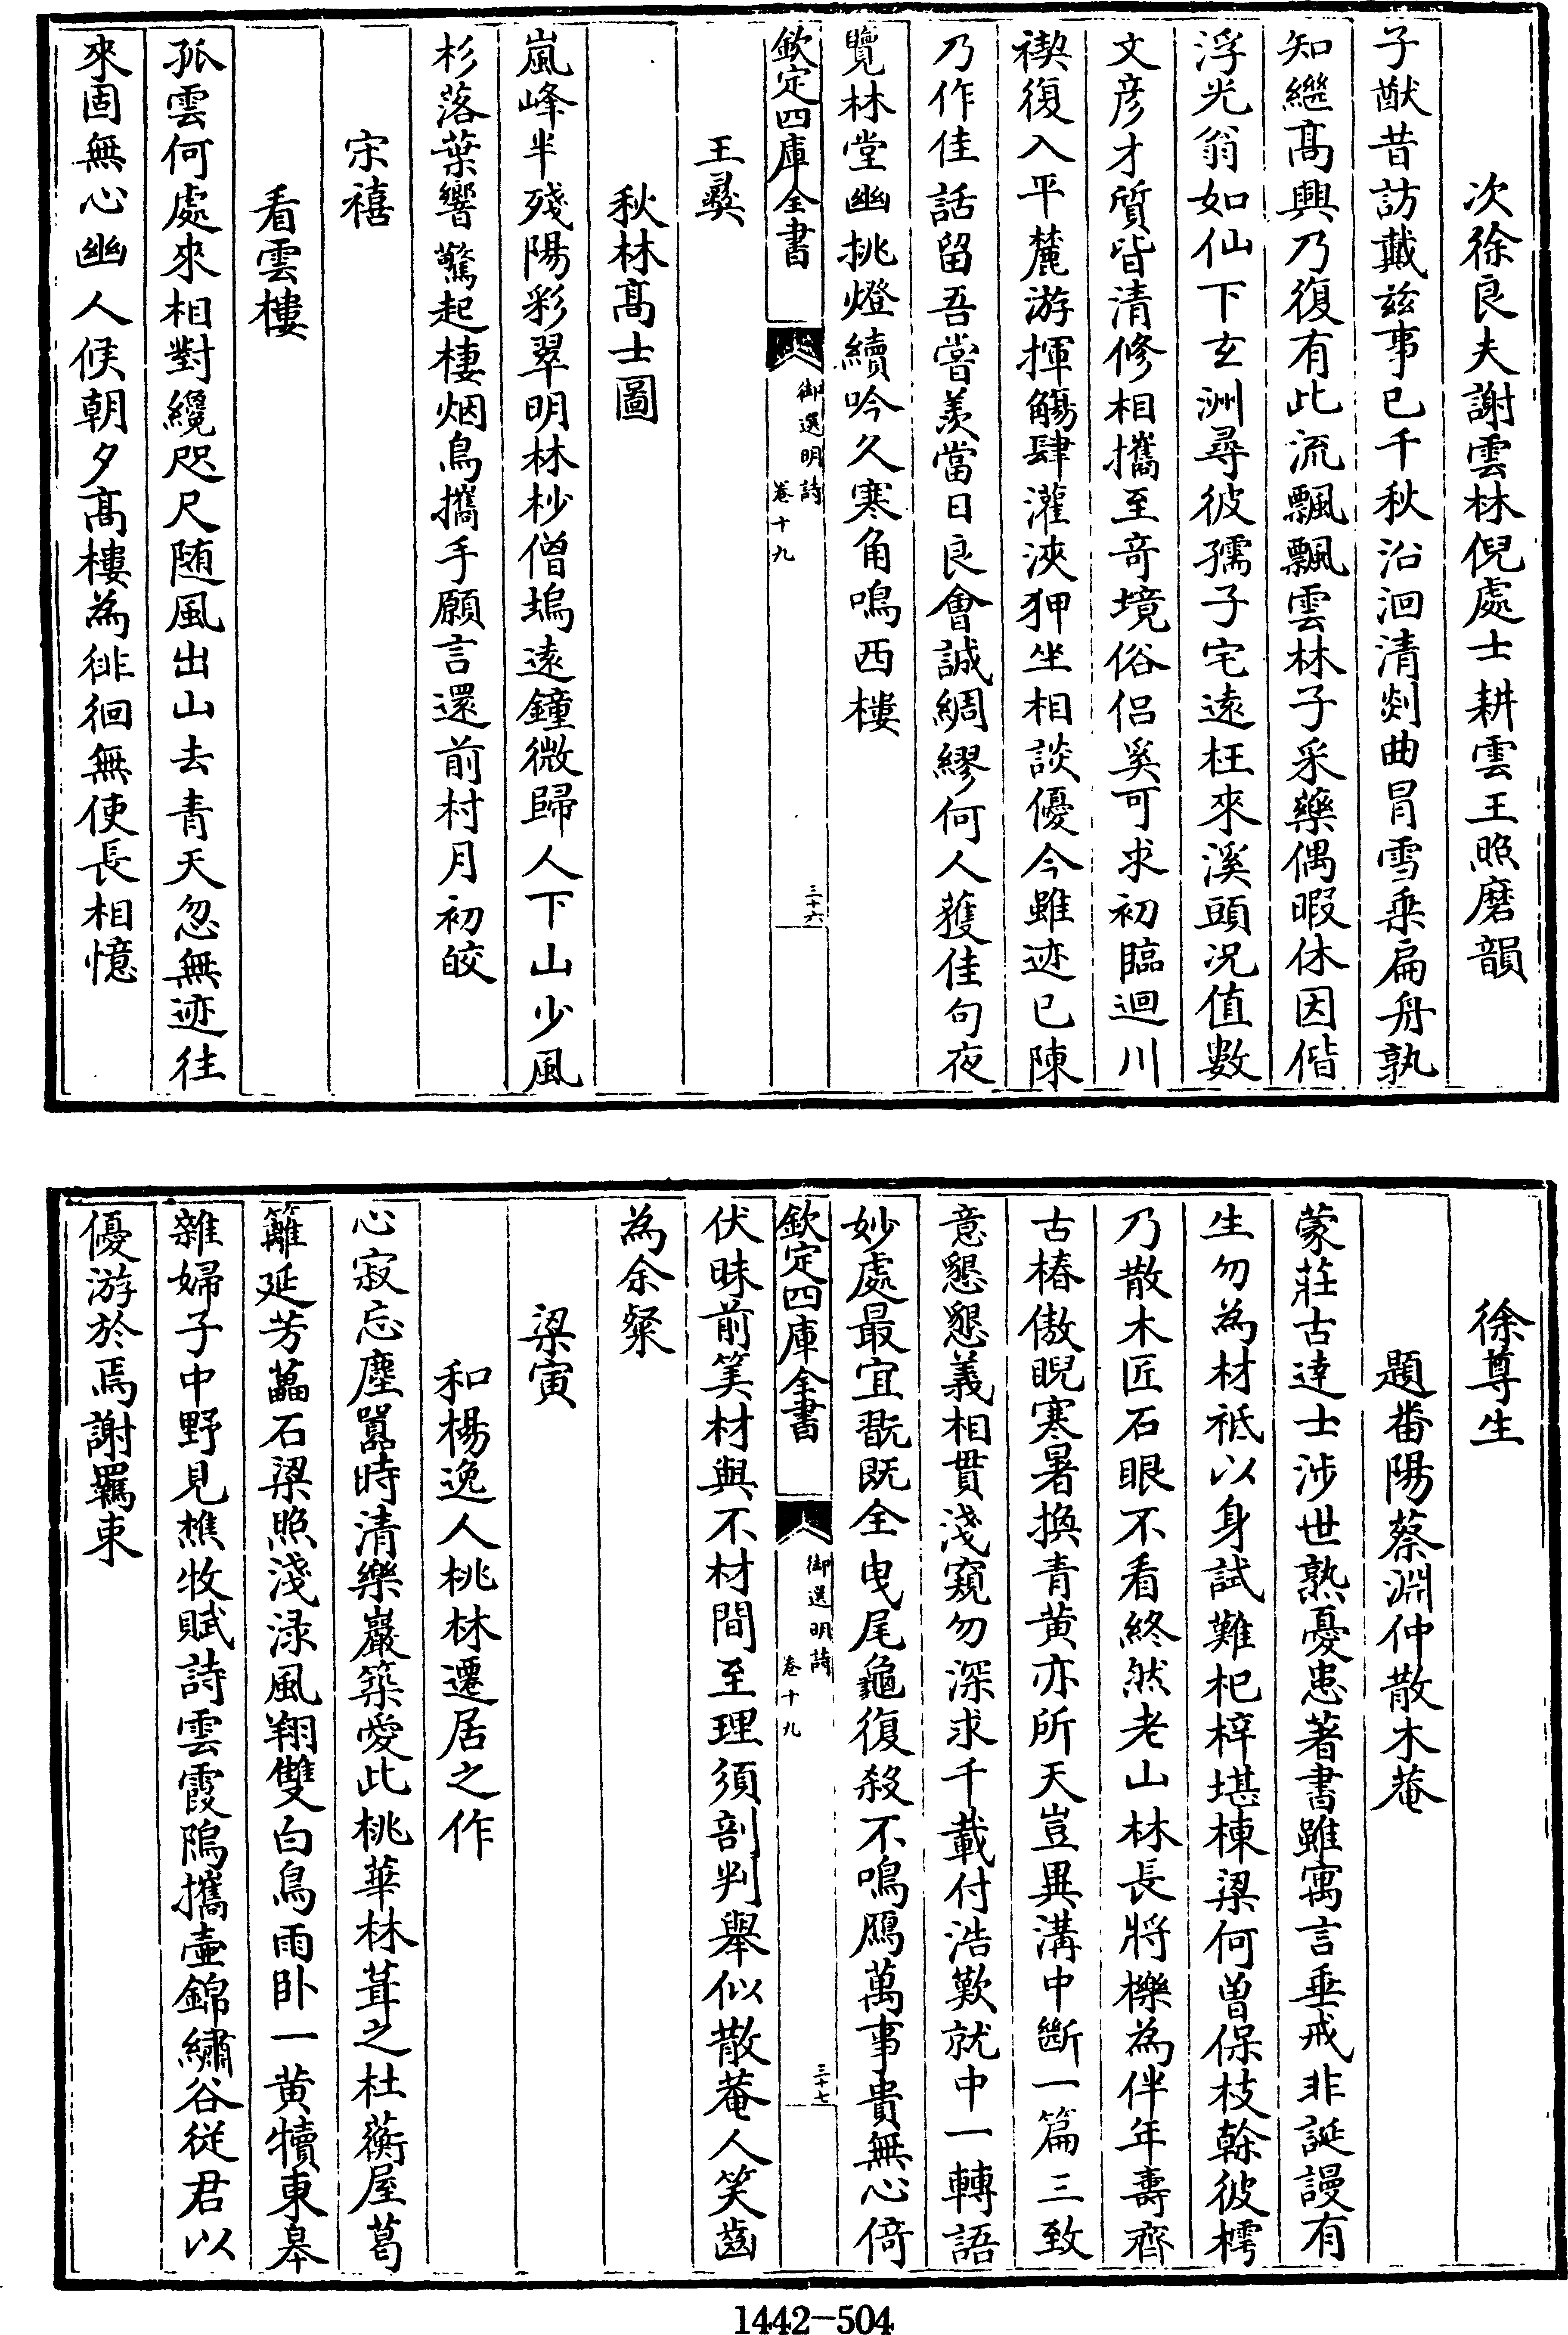 次徐良夫謝雲林倪處士耕雲王照磨韻
子猷昔訪戴兹事已千秋沿洄清剡曲冒雪乗扁舟孰
知繼髙興乃復有此流飄飄雲林子采藥偶暇休因偕
浮光翁如仙下玄洲尋彼孺子宅逺枉來溪頭况值數
文彦才質皆清修相攜至竒境俗侣奚可求初臨迴川
禊復入平麓游揮觴肆灌浹狎坐相談優今雖迹已陳
乃作佳話留吾嘗羨當日良會誠綢繆何人䕶佳句夜
覽林堂幽挑燈續吟久寒角鳴西樓
欽定四庫全書
御選明詩
卷十九
三十六
王彞
秋林髙士圖
嵐峰半殘陽彩翠明林杪僧塢逺鐘微歸人下山少風
杉落葉響驚起棲烟鳥攜手願言還前村月初皎
宋禧
看雲樓
孤雲何處來相對纔咫尺随風出山去青天忽無迹往
來固無心幽人候朝夕髙樓為徘徊無使長相憶
徐尊生
題番陽蔡淵仲散木菴
蒙莊古達士涉世熟憂患著書雖寓言垂戒非誕謾有
生勿為材祗以身試難杞梓堪棟梁何曽保枝榦彼樗
乃散木匠石眼不看終然老山林長將櫟為伴年壽齊
古椿傲睨寒暑換青黄亦所天豈異溝中斷一篇三致
意懇懇義相貫淺窺勿深求千載付浩歎就中一轉語
妙處最宜翫既全曳尾龜復殺不鳴鴈萬事貴無心倚
伏昧前筭材與不材間至理須剖判舉似散菴人笑齒
為余粲
欽定四庫全書
御選明詩
卷十九
三十七
梁寅
和楊逸人桃林遷居之作
心寂忘塵囂時清樂巖築愛此桃華林葺之杜蘅屋葛
籬延芳藟石梁照淺渌風翔雙白鳥雨卧一黄犢東皋
雜婦子中野見樵牧賦詩雲霞隖攜壷錦繡谷從君以
優游於焉謝羈束
1442-504